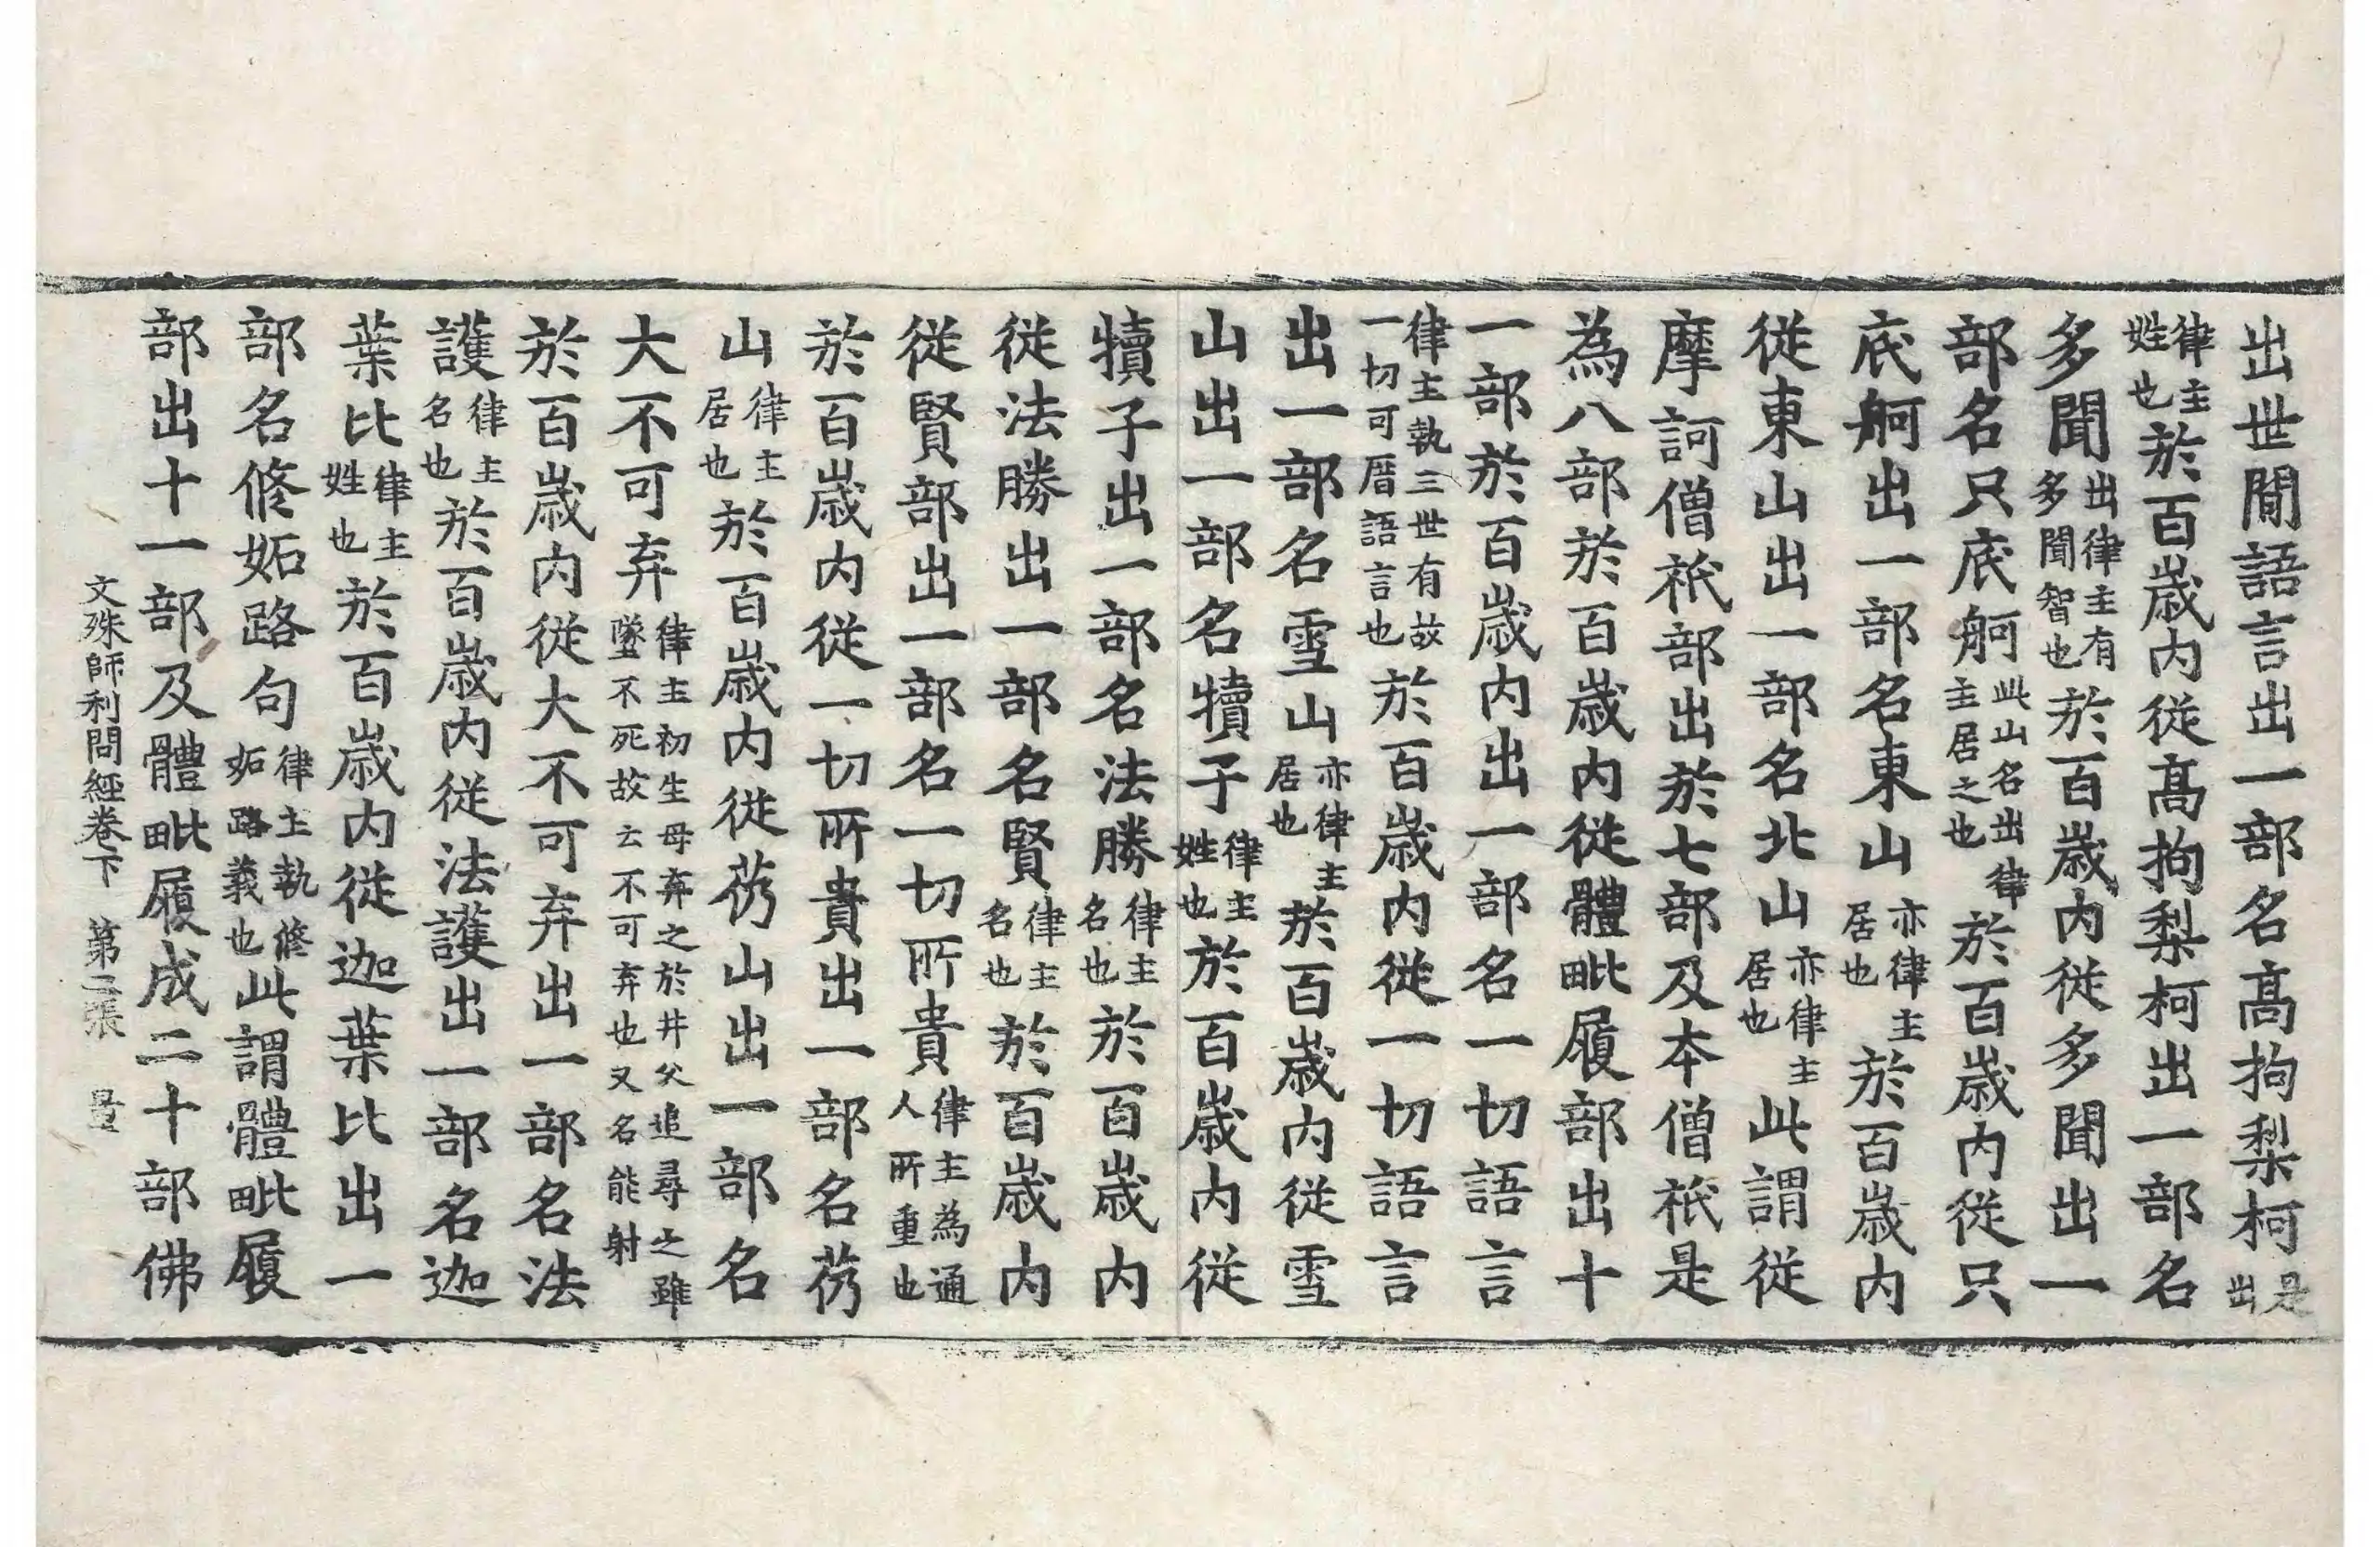 出世間語言出一部名髙拘梨柯是出
律主姓也於百歳内従髙拘梨柯出一部名
多聞出律主有多聞智也於百歳内従多聞出一
部名只底舸此山名出律主居之也於百歳内従只
底舸出一部名東山亦律主居也於百歳内
従東山出一部名北山亦律主居也此謂従
摩訶僧祇部出於七部及夲僧祇是
為八部於百歳内従體毗履部出十
一部於百歳内出一部名一切語言
律主執三世有故一切可厝語言也於百歳内従一切語言
出一部名雪山亦律主居也於百歳内従雪
山出一部名犢子律主姓也於百歳内従
犢子出一部名法勝律主名也於百歳内
従法勝出一部名賢律主名也於百歳内
従賢部出一部名一切所貴律主為通人所重也
於百歳内従一切所貴出一部名芿
山律主居也於百歳内従芿山出一部名
大不可弃律主初生母弃之於井父追尋之雖墜不死故云不可弃也又名能射
於百歳内従大不可弃出一部名法
護律主名也於百歳内従法護出一部名迦
葉比律主姓也於百歳内従迦葉比出一
部名修妬路句律主執修妬路義也此謂體毗履
部出十一部及體毗履成二十部佛
文殊師利問經卷下　第二張